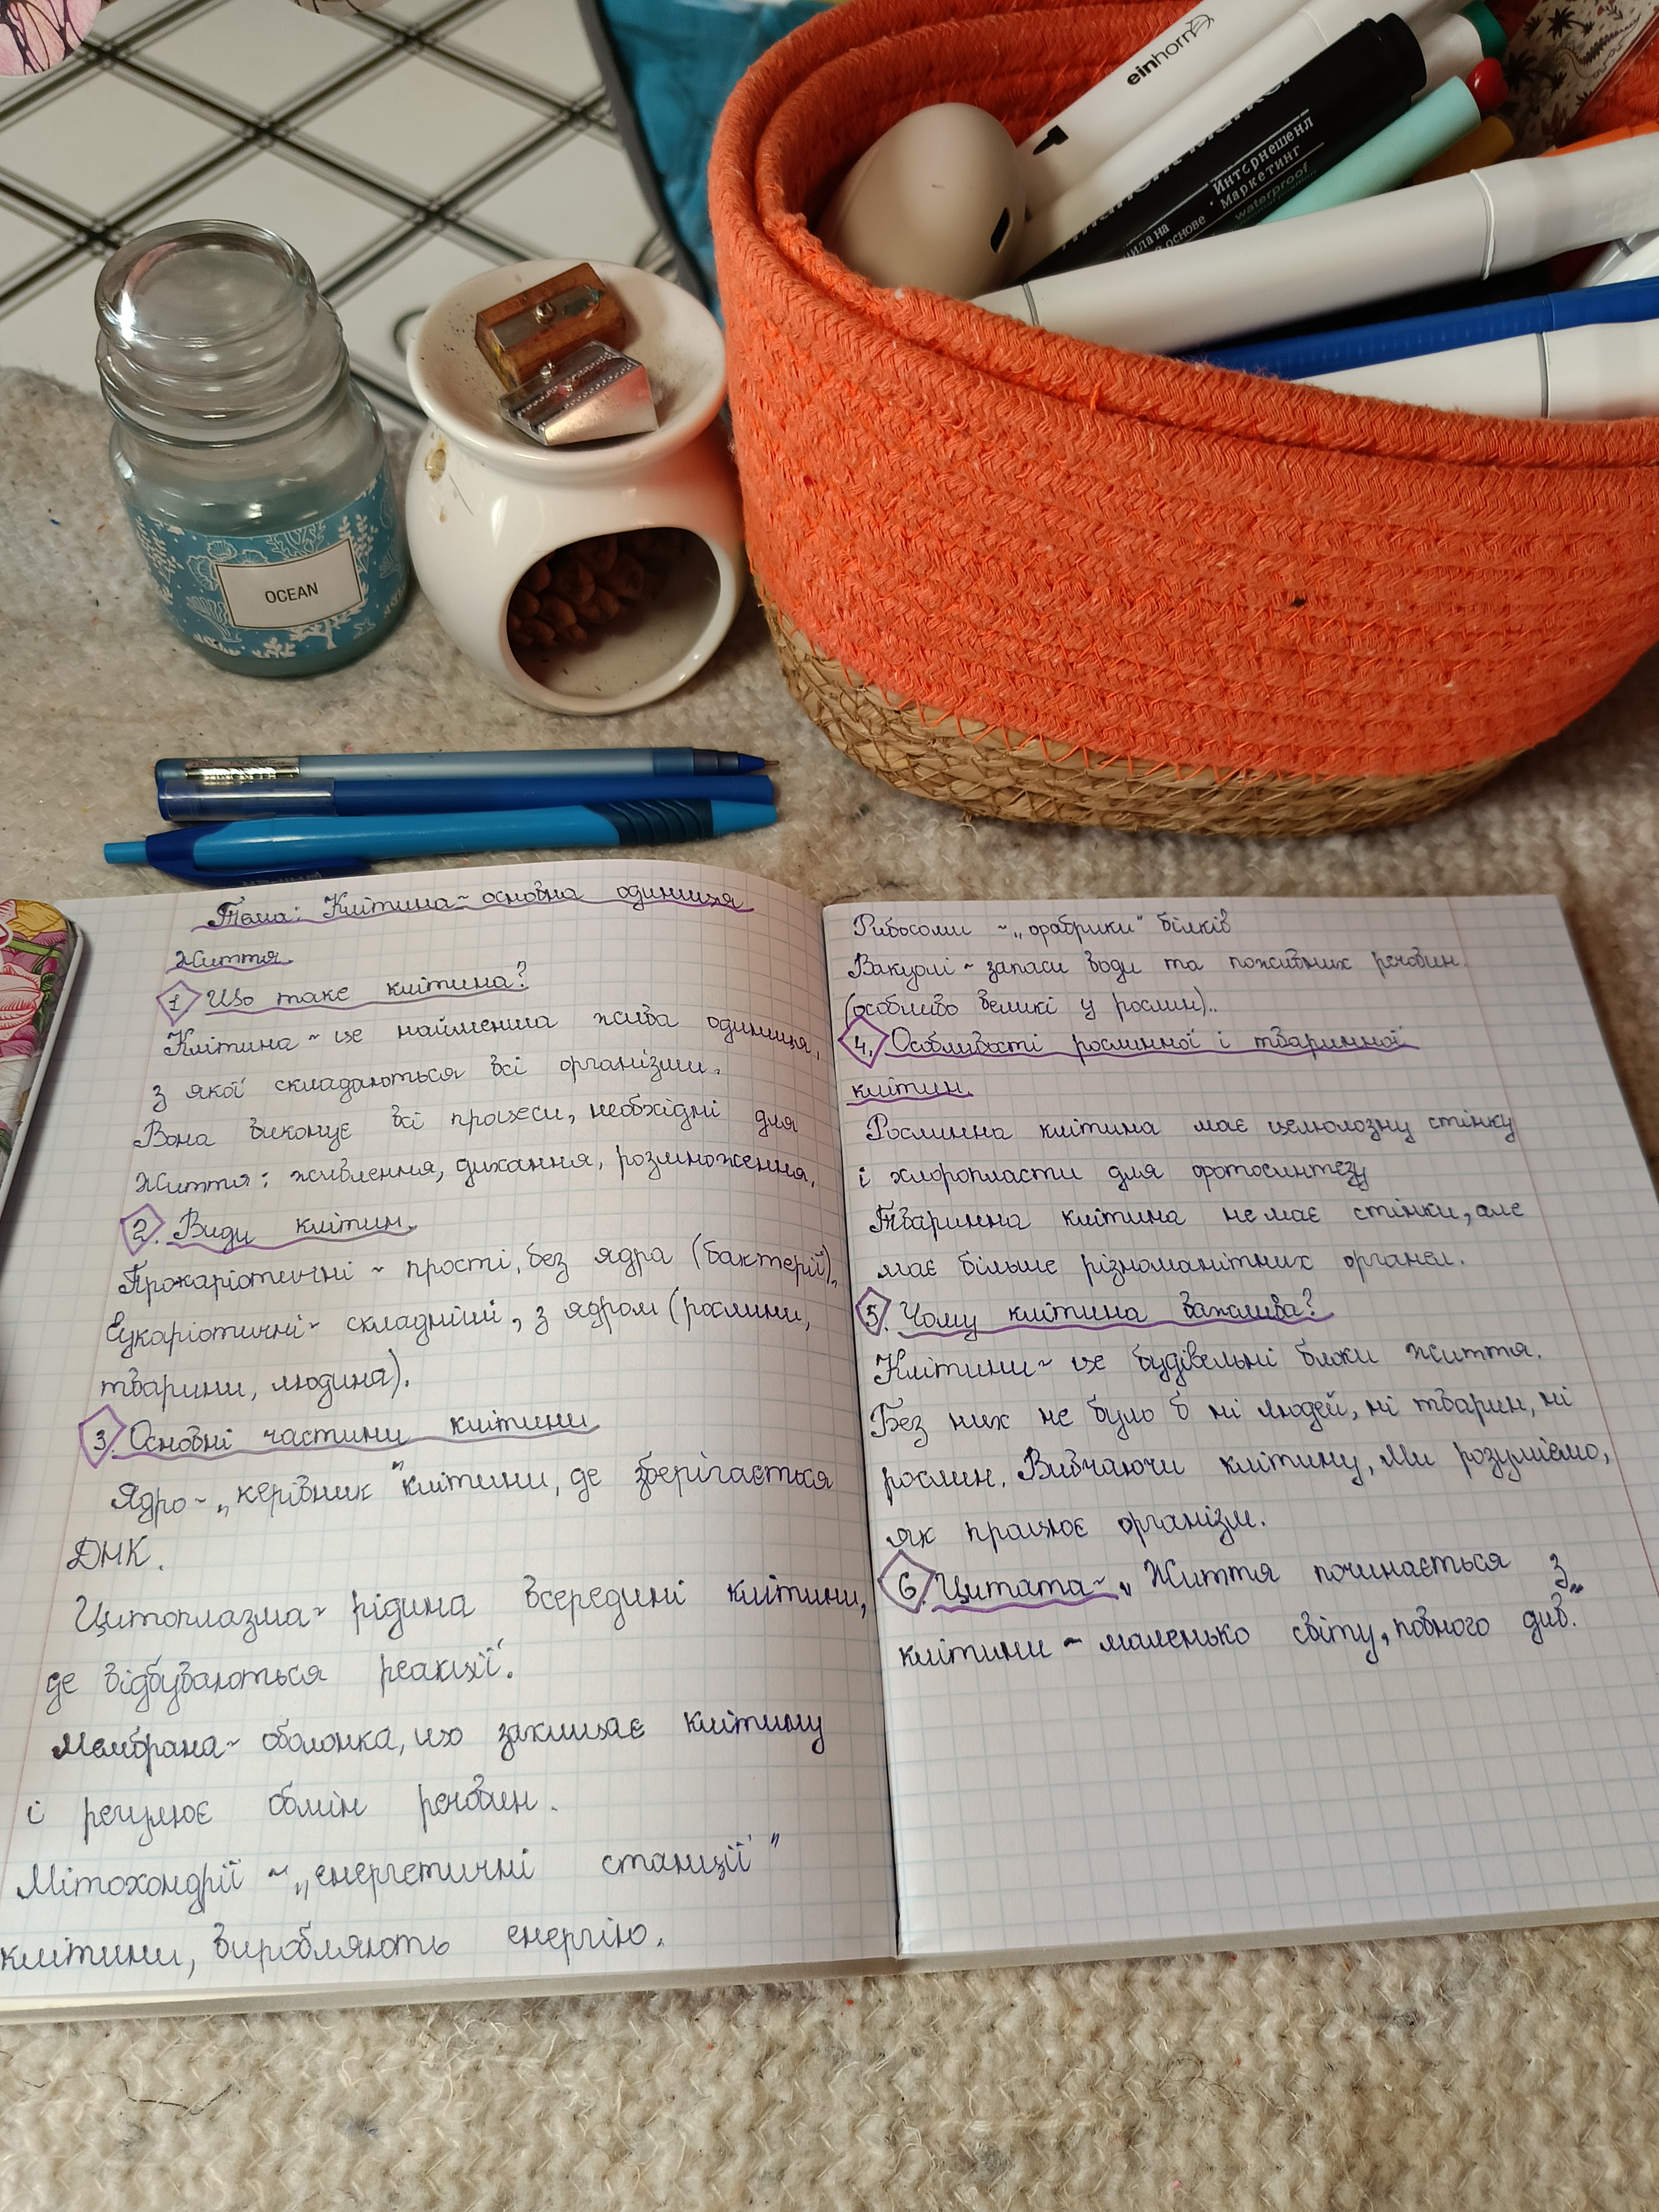 einhorn
Интернешенл
Маркетинг
waterproof
основе
OCEAN
Тема: Клітина ~ основна одиниця
життя.
1. Що таке клітина?
Клітина ~ це найменша жива одиниця,
з якої складаються всі організми.
Вона виконує всі процеси, необхідні для
життя: живлення, дихання, розмноження.
2. Види клітин.
Прокаріотичні ~ прості, без ядра (бактерії).
Еукаріотичні ~ складніші, з ядром (рослини,
тварини, людина).
3. Основні частини клітини
Ядро ~ „керівник" клітини, де зберігається
ДНК.
Цитоплазма ~ рідина всередині клітини,
де відбуваються реакції.
Мембрана ~ оболонка, що захищає клітину
і регулює обмін речовин.
Мітохондрії ~ „енергетичні станції"
клітини, виробляють енергію.
Рибосоми ~ „фабрики" білків
Вакуолі ~ запаси води та поживних речовин.
(особливо великі у рослин)..
4. Особливості рослинної і тваринної
клітин.
Рослинна клітина має целюлозну стінку
і хлоропласти для фотосинтезу
Тваринна клітина не має стінки, але
має більше різноманітних органел.
5. Чому клітина важлива?
Клітини ~ це будівельні блоки життя.
Без них не було б ні людей, ні тварин, ні
рослин. Вивчаючи клітину, ми розуміємо,
як працює організм.
6. Цитата ~ „Життя починається з
клітини ~ маленько світу, повного див."